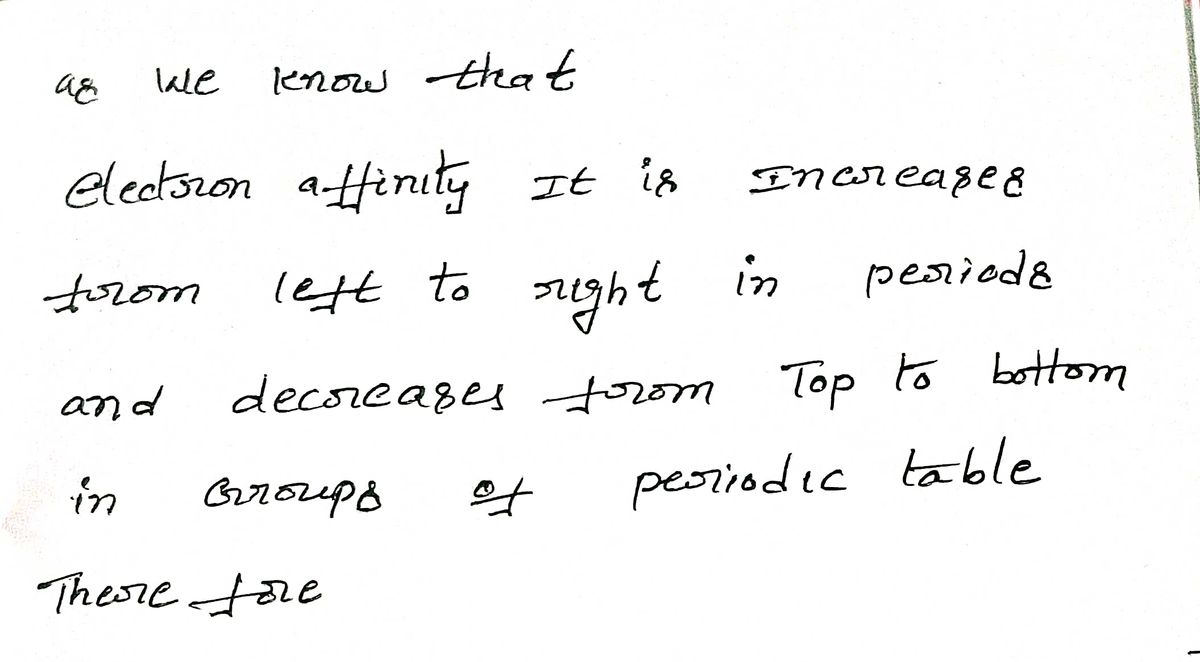 as we know that
electron affinity It is Increases
from left to right in periods
and decreases from Top to bottom
in Groups of periodic table
There fore